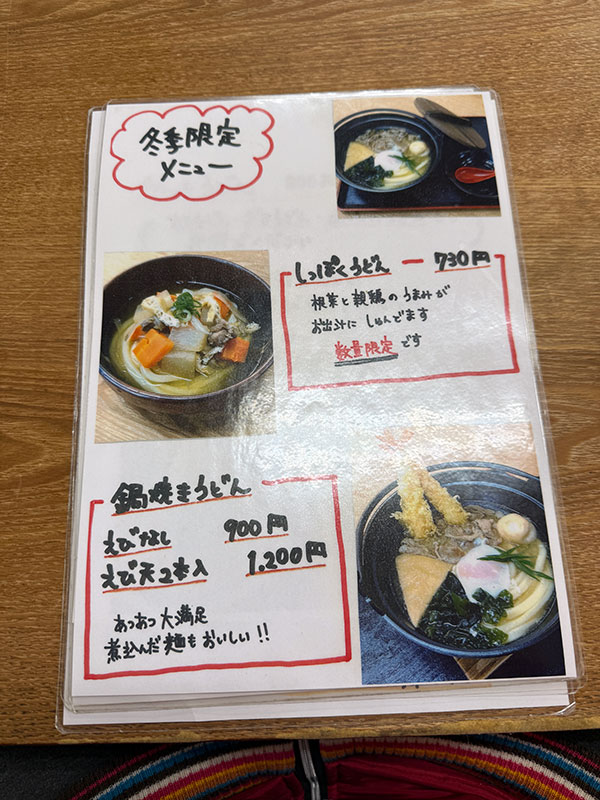 冬季限定
メニュー
しっぽくうどん ー 730円
根菜と親鶏のうまみが
お出汁にしゅんでます
数量限定です
鍋焼きうどん
えびなし 900円
えび天2本入 1.200円
あつあつ大満足
煮込んだ麺もおいしい!!